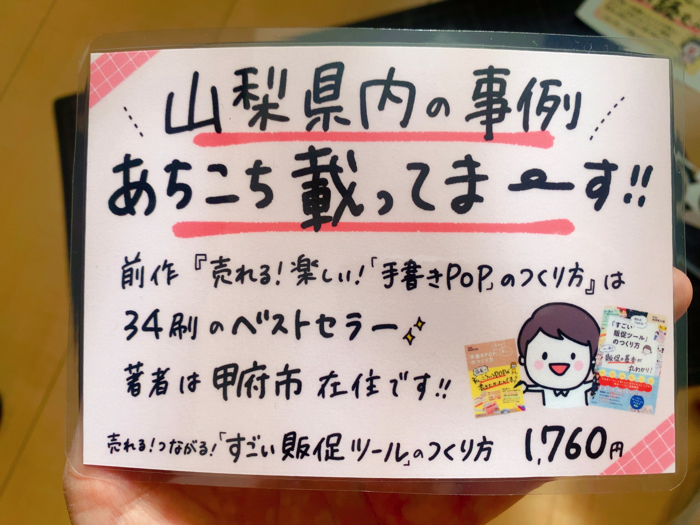 山梨県内の事例
あちこち載ってまーす!!
前作『売れる!楽しい!「手書きPOP」のつくり方』は
34刷のベストセラー
著者は甲府市在住です!!
売れる!つながる!「すごい販促ツール」のつくり方 1,760円
「すごい
販促ツール」
のつくり方